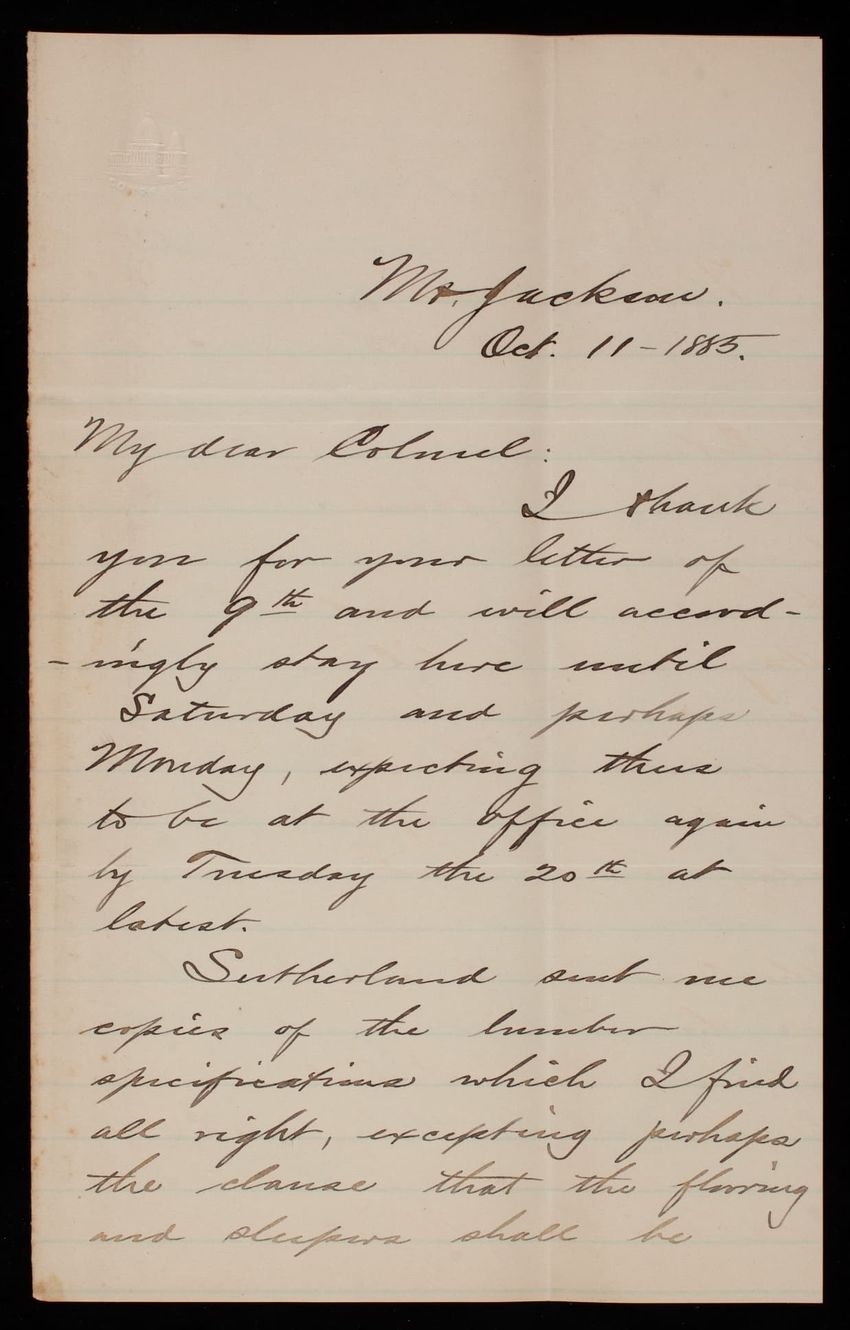 Mt. Jackson.
Oct. 11 – 1885.
My dear Colonel:
I thank
you for your letter of
the 9th and will accord-
-ingly stay here until
Saturday and perhaps
Monday, expecting thus
to be at the office again
by Tuesday the 20th at
latest.
Sutherland sent me
copies of the lumber
specifications which I find
all right, excepting perhaps
the clause that the flooring
and sleepers shall be